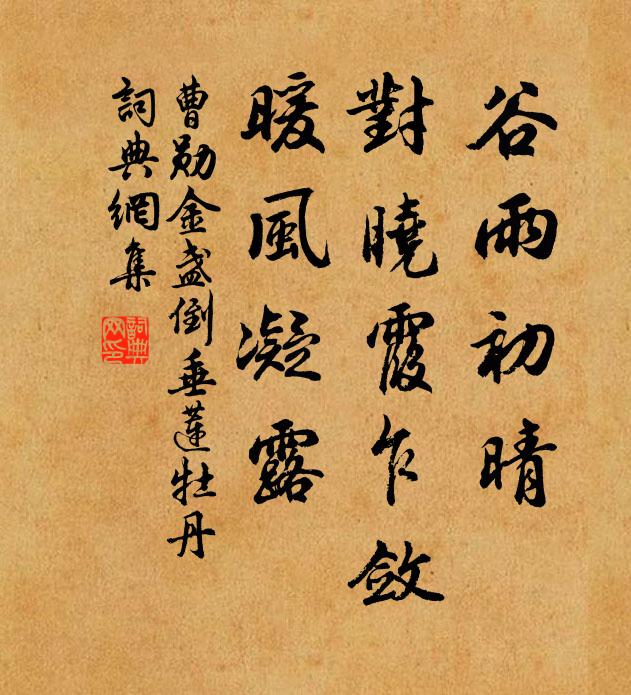 谷雨初晴
對曉霞乍斂
暖風凝露
曹勛金盞倒垂蓮牡丹
詞典網集
詞典網印